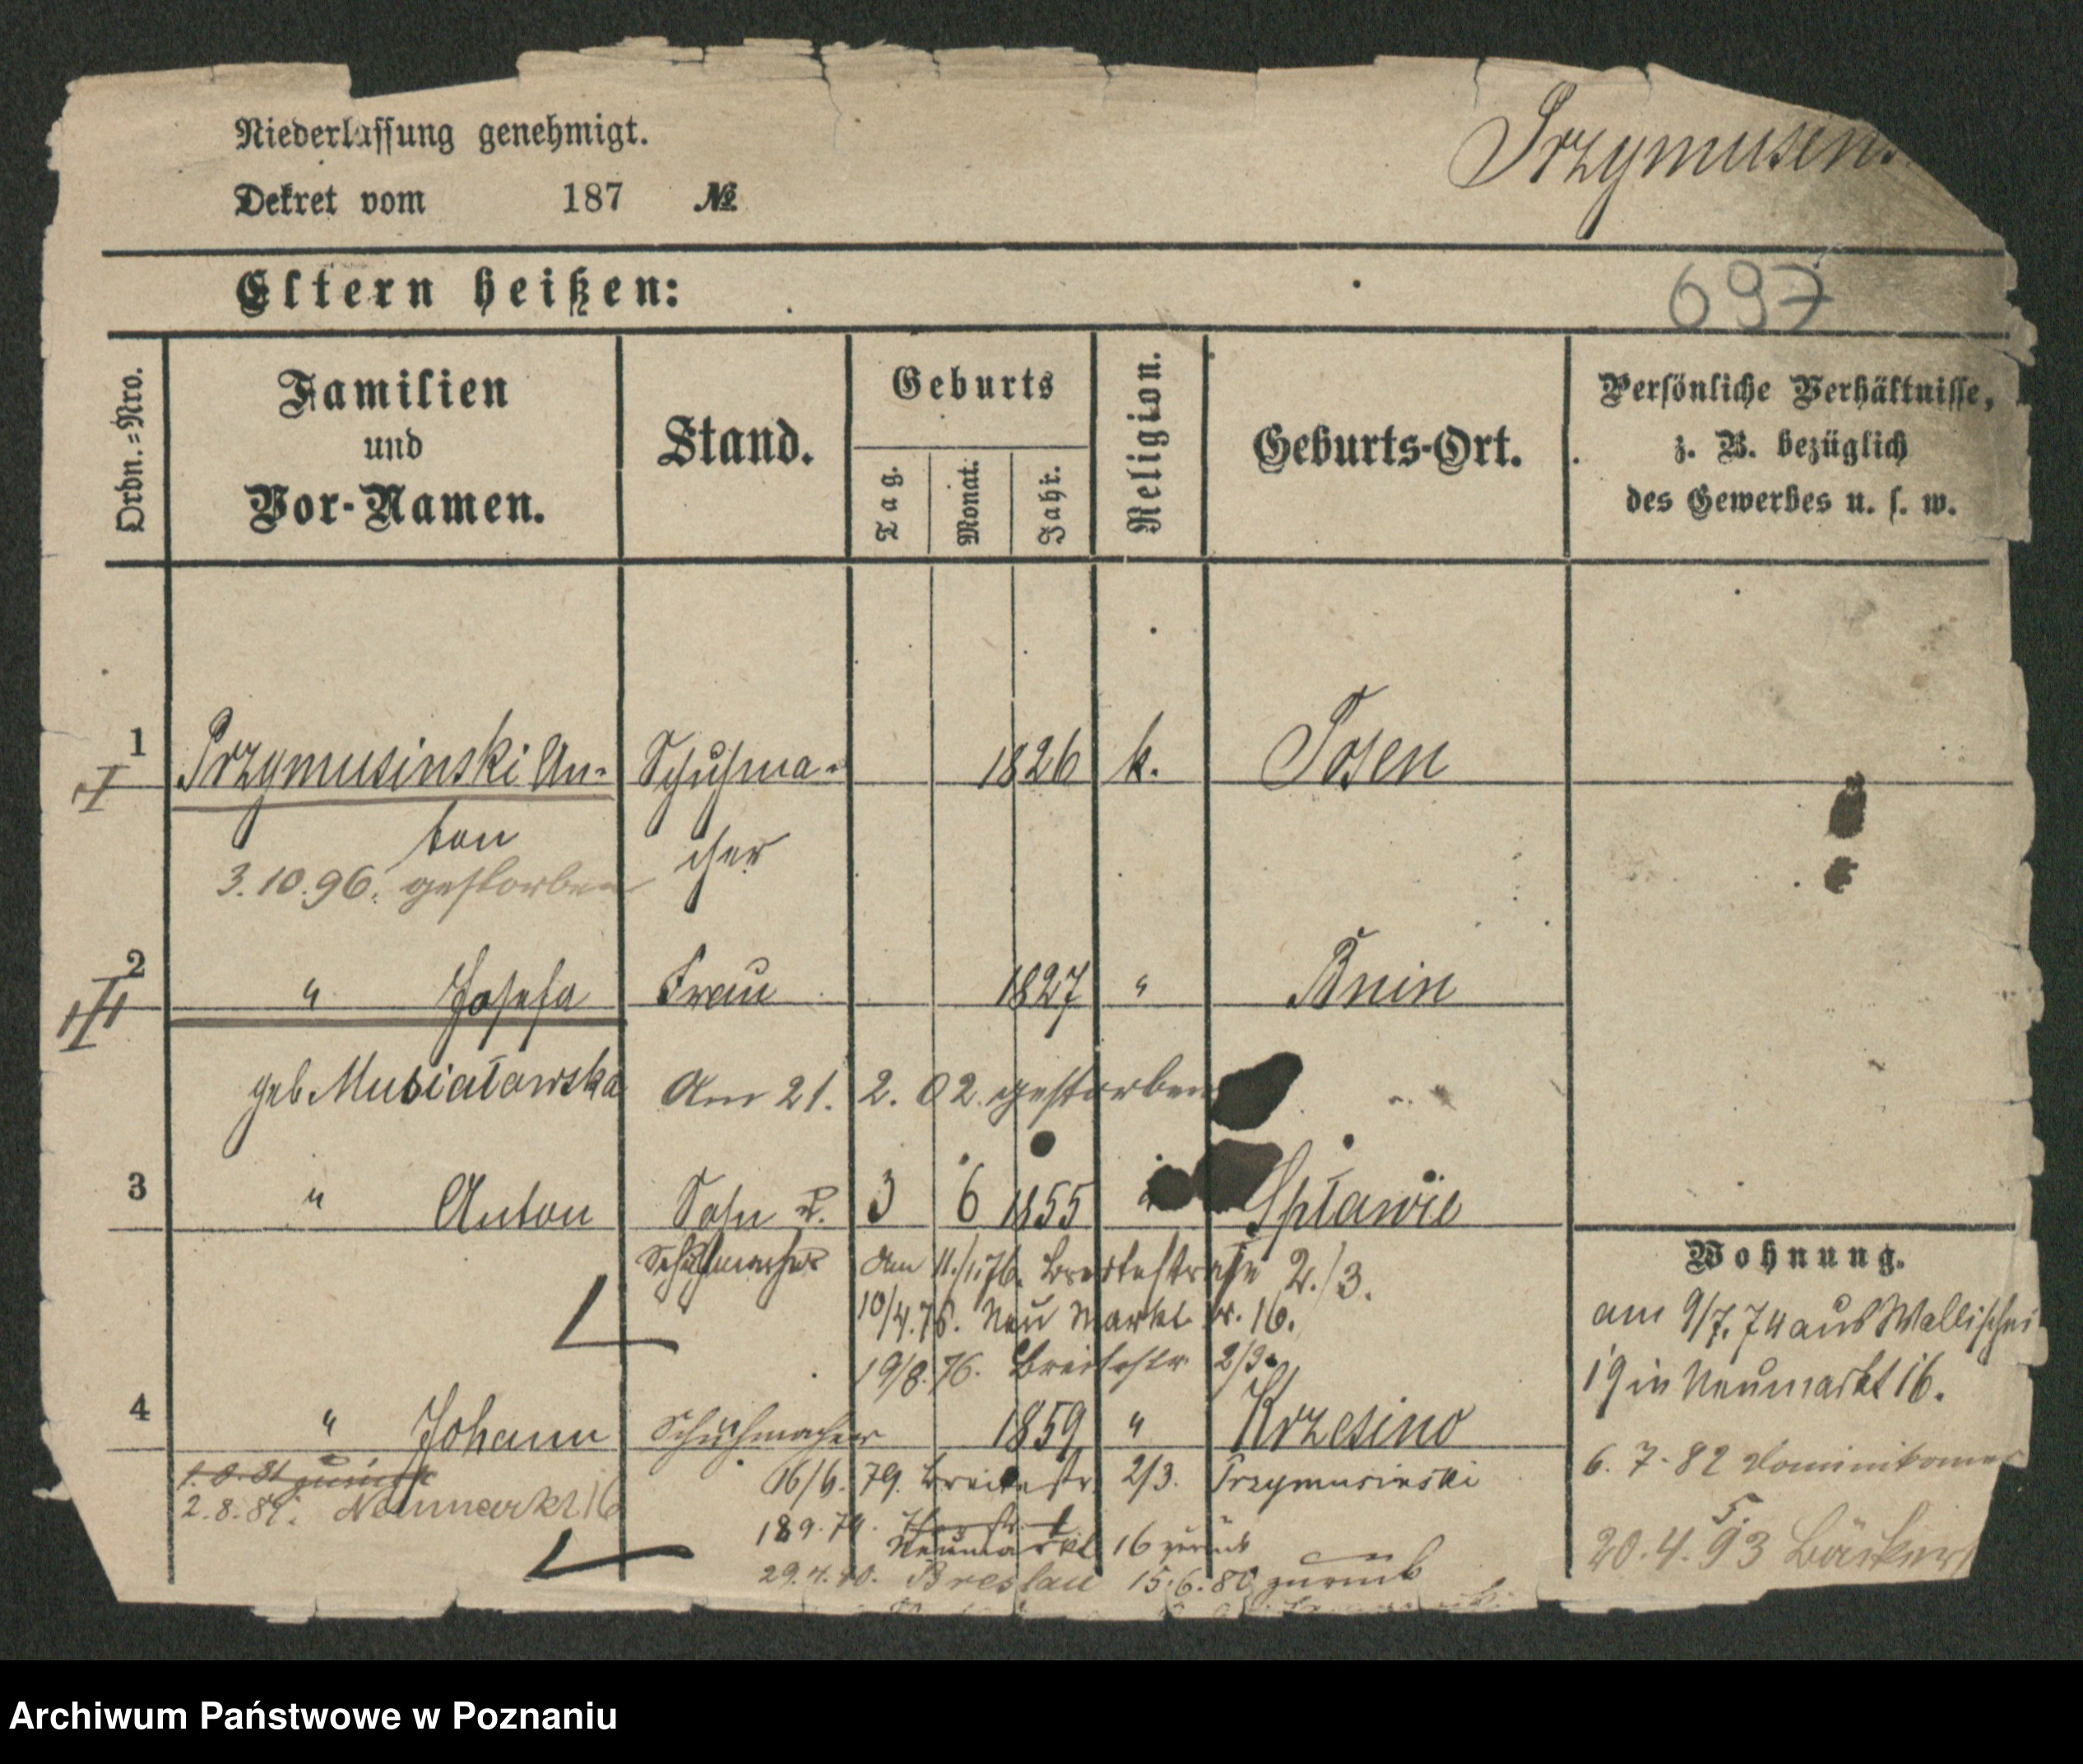 Niederlassung genehmigt.
Przymusin
Dekret vom 187 №
Eltern heißen:
697
Ordn.=Nro.
Familien
und
Vor-Namen.
Stand.
Geburts
Tag.
Monat.
Jahr.
Religion.
Geburts-Ort.
Persönliche Verhältnisse,
z. B. bezüglich
des Gewerbes u. s. w.
1 Przymusinski An- Schuhma- 1826 k. Posen
I
ton cher
3.10.96. gestorben
2 " Josefa Frau 1827 " Bnin
III
geb Musiałowska Am 21. 2. 02 gestorben
3 " Anton Sohn 3 6 1855 Spławie
Schuhmacher am 11./1.76. Breitestraße 2./3.
10/4.76. Neu Markt Nr. 16.
19/8.76. Breitestr 2/3.
4 " Johann Schuhmacher 1859 " Krzesino
1.8.81 zurück
16/6.79. Breitestr. 2/3. Przymusinski
2.8.81. Neumarkt 16
18 9.79. Neumarkt 16 zurück
29.4.80. Breslau 15.6.80 zurück
Wohnung.
am 9/7.74 aus Wallischei
19 in Neumarkt 16.
6.7.82 Dominikaner
5.
20.4.93 Bäcker
Archiwum Państwowe w Poznaniu